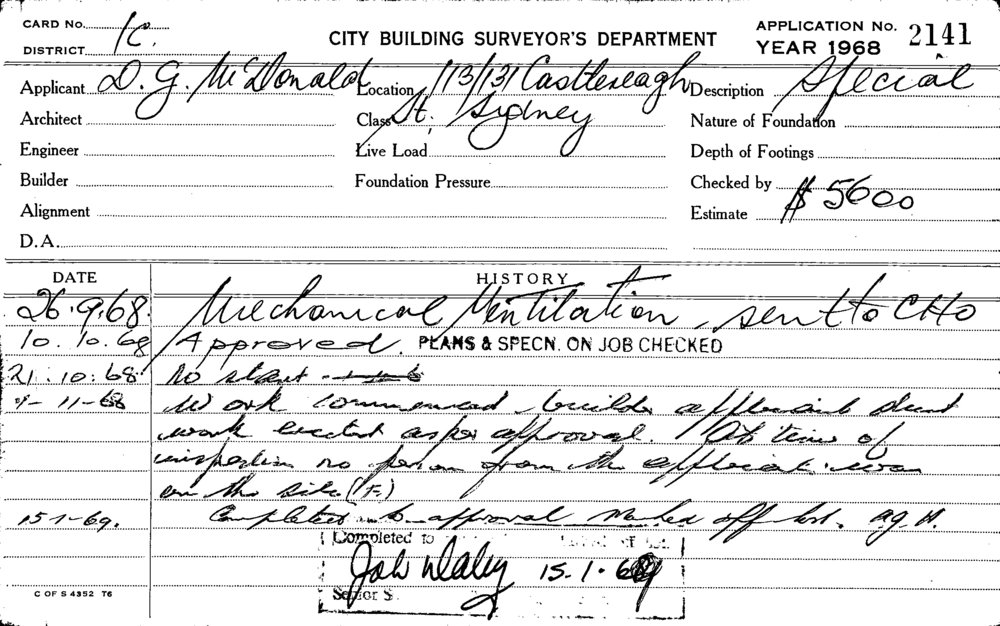 CARD No. 1c.
DISTRICT
CITY BUILDING SURVEYOR'S DEPARTMENT
APPLICATION No. 2141
YEAR 1968
Applicant D. G. McDonald
Location 113/131 Castlereagh
Description Special
Architect
Class St. Sydney
Nature of Foundation
Engineer
Live Load
Depth of Footings
Builder
Foundation Pressure
Checked by
Alignment
Estimate $ 5600
D.A.
DATE HISTORY
26.9.68. Mechanical Ventilation. sent to CHO
10.10.68 Approved. PLANS & SPECN. ON JOB CHECKED
21.10.68 No start
11-68 Work commenced, builder applicant duct
work erected as per approval. At time of
inspection no person from the applicant was
on the site
15-1-69. Completed to approval marked off list. A.G.H.
Completed to
John Daley 15.1.69
Senior S
C OF S 4352 T6